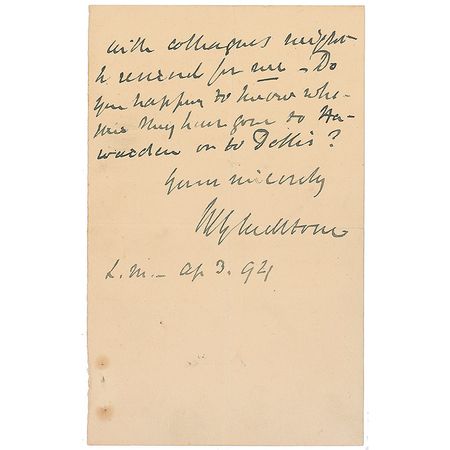 with colleagues might
be reserved for me – Do
you happen to know whe-
ther they have gone to Ha-
warden or to Dollis?
Yours sincerely
W E Gladstone
L.M. – Ap 3. 94